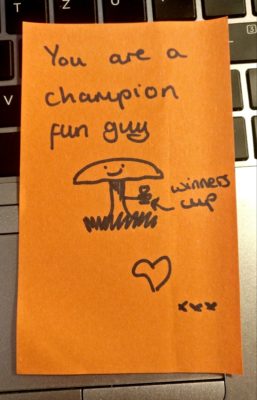 You are a
champion
fun guy
winners
cup
xxx